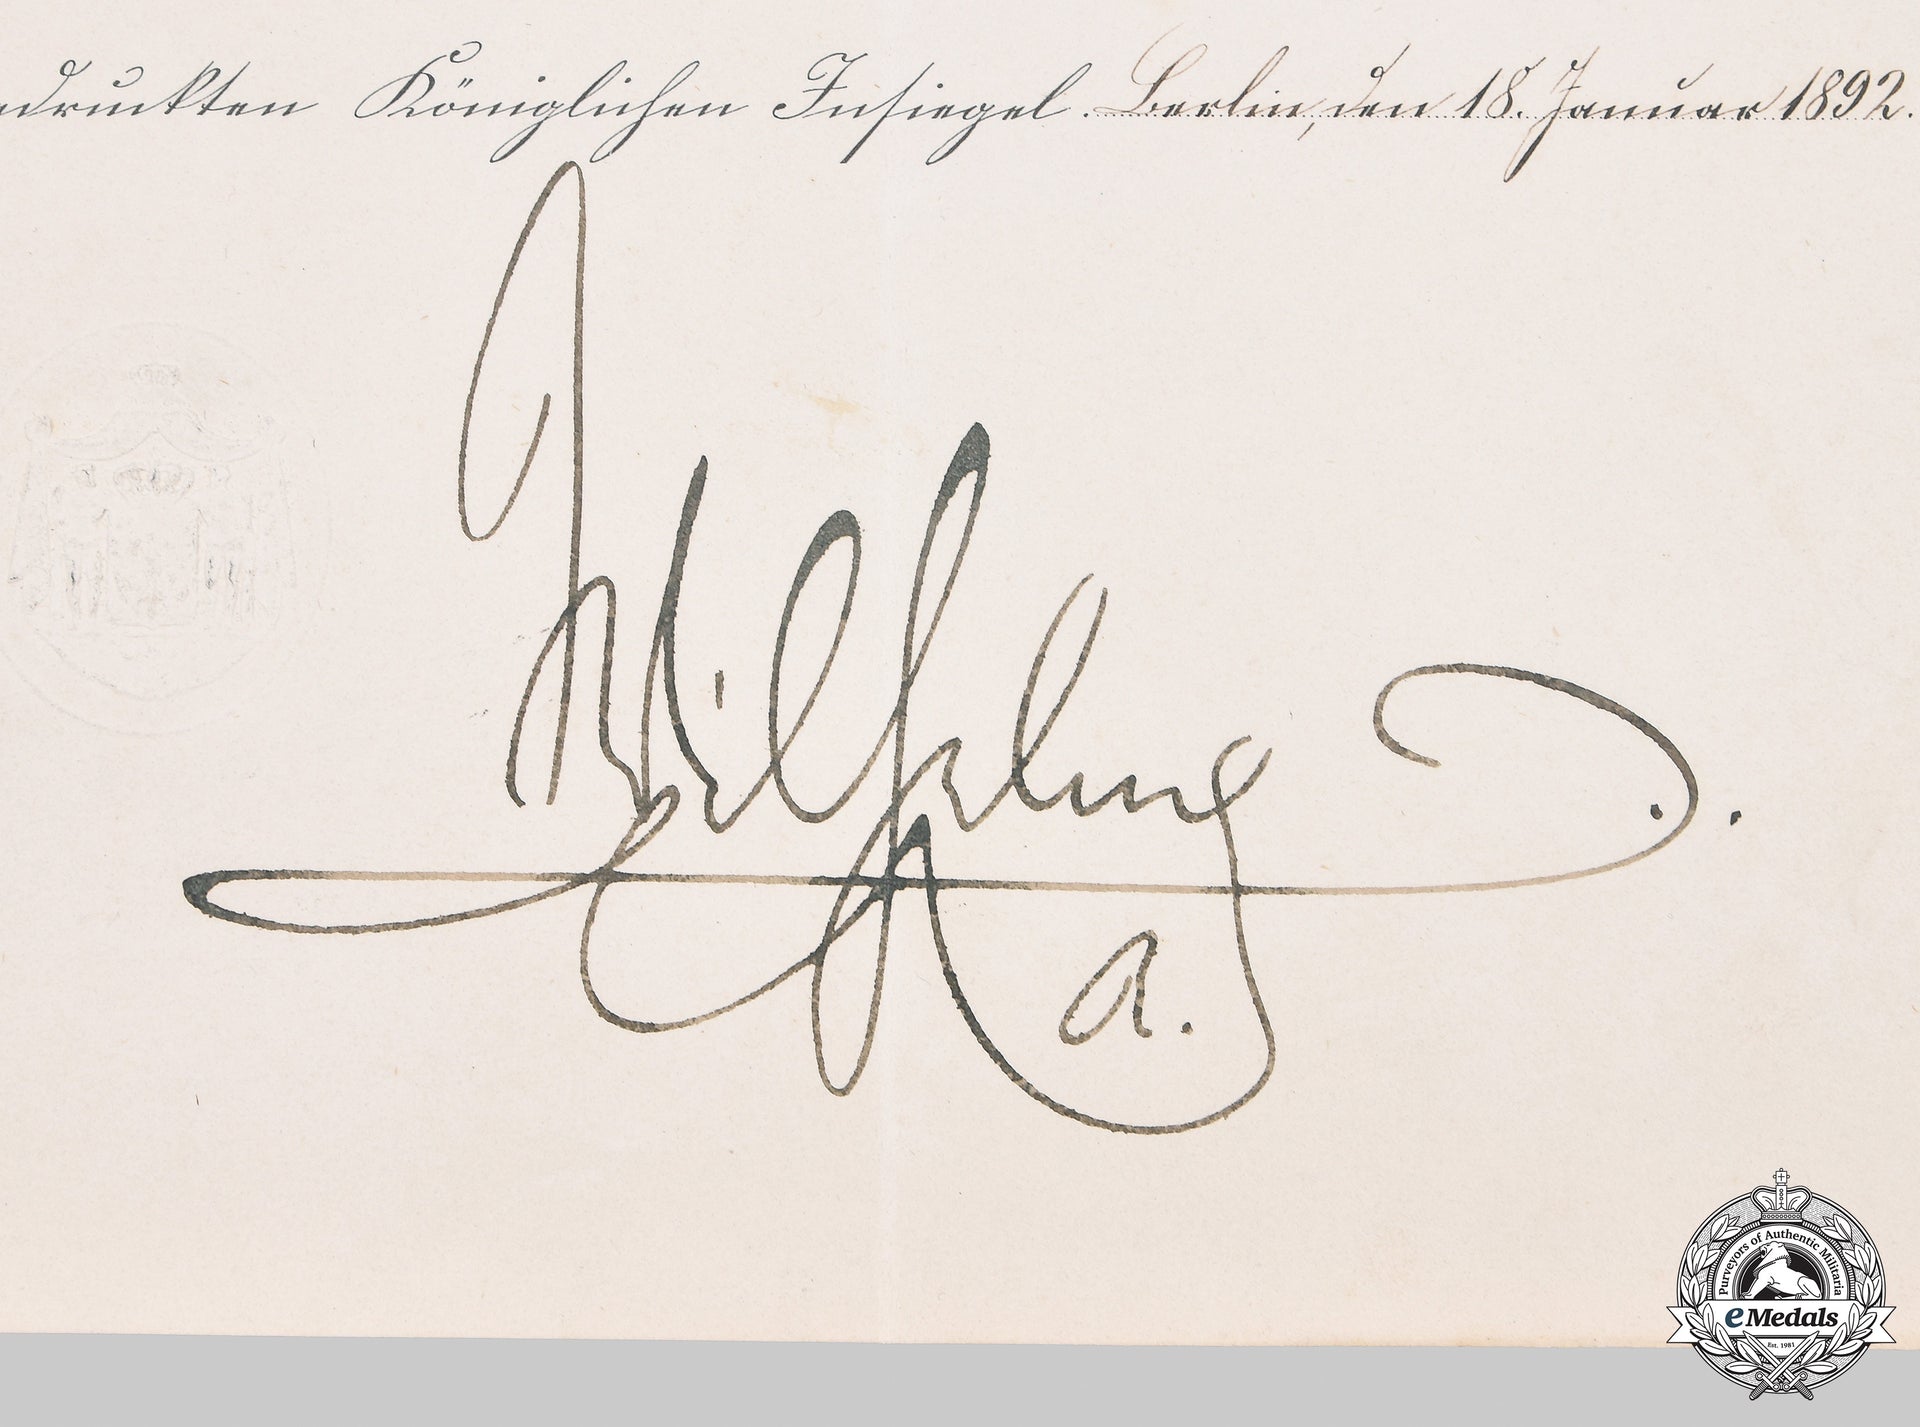 edruckten Königlichen Insiegel. Berlin, den 18. Januar 1892.
Wilhelm
R.
Purveyors of Authentic Militaria
eMedals
Est. 1981